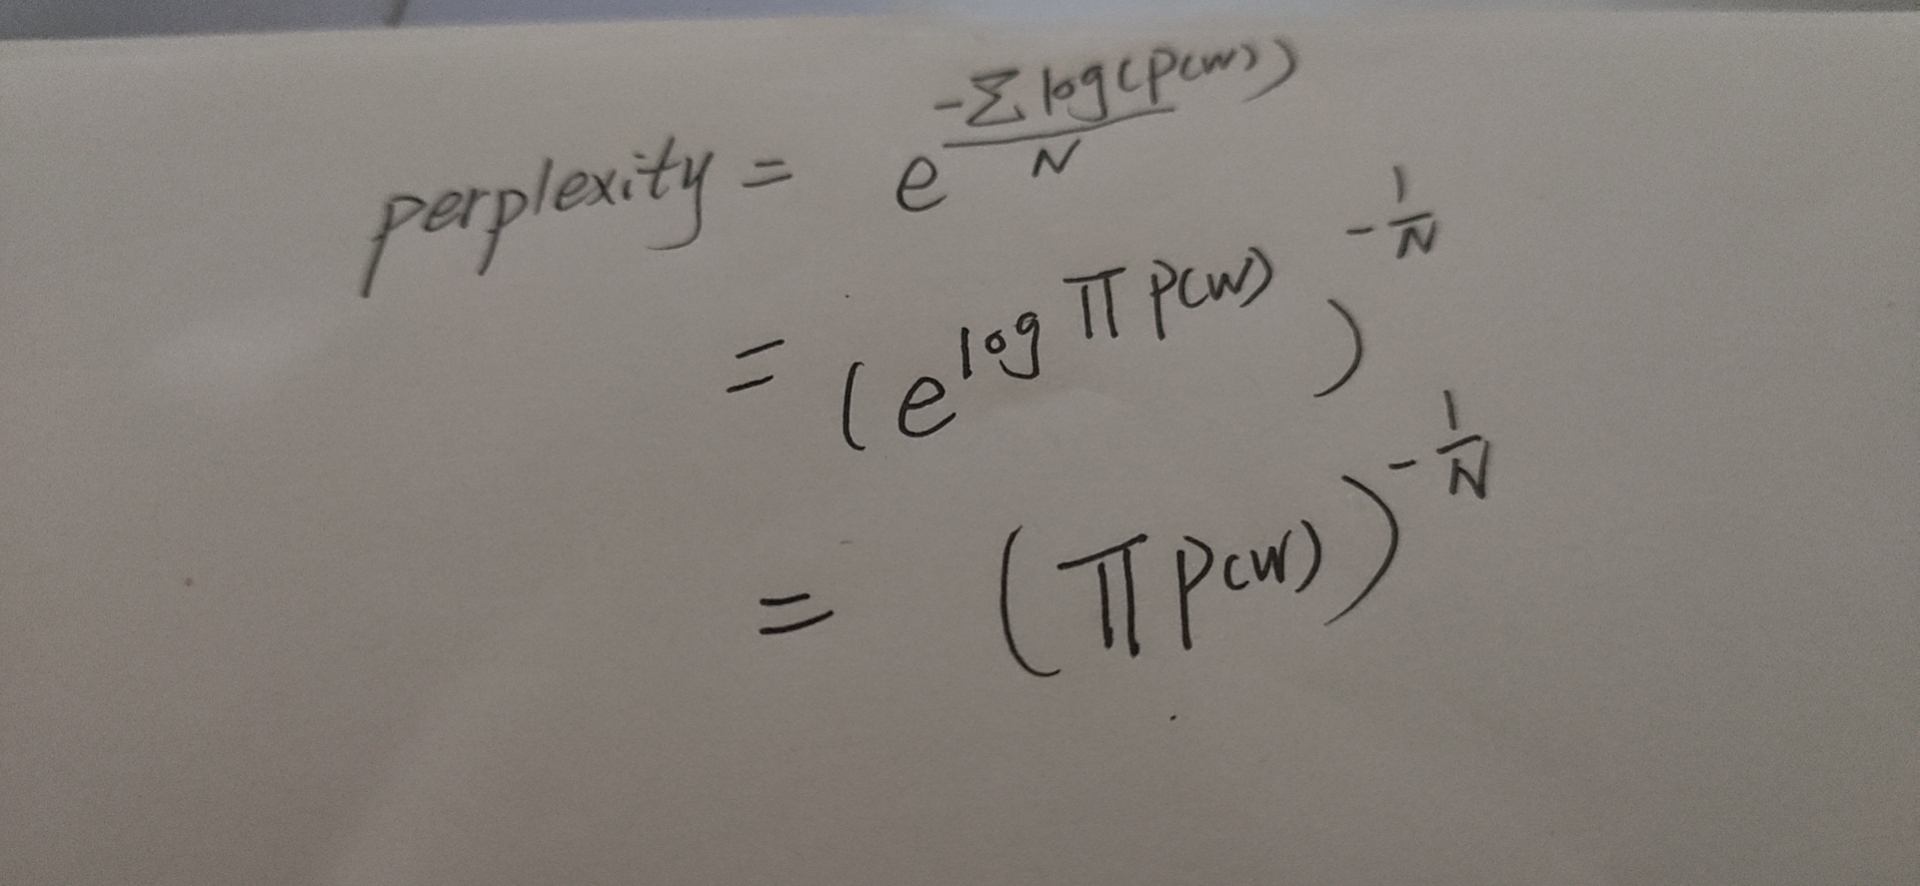 perplexity = e^(-Σ log(p(w)) / N)
= (e^(log Π p(w)))^(-1/N)
= (Π p(w))^(-1/N)